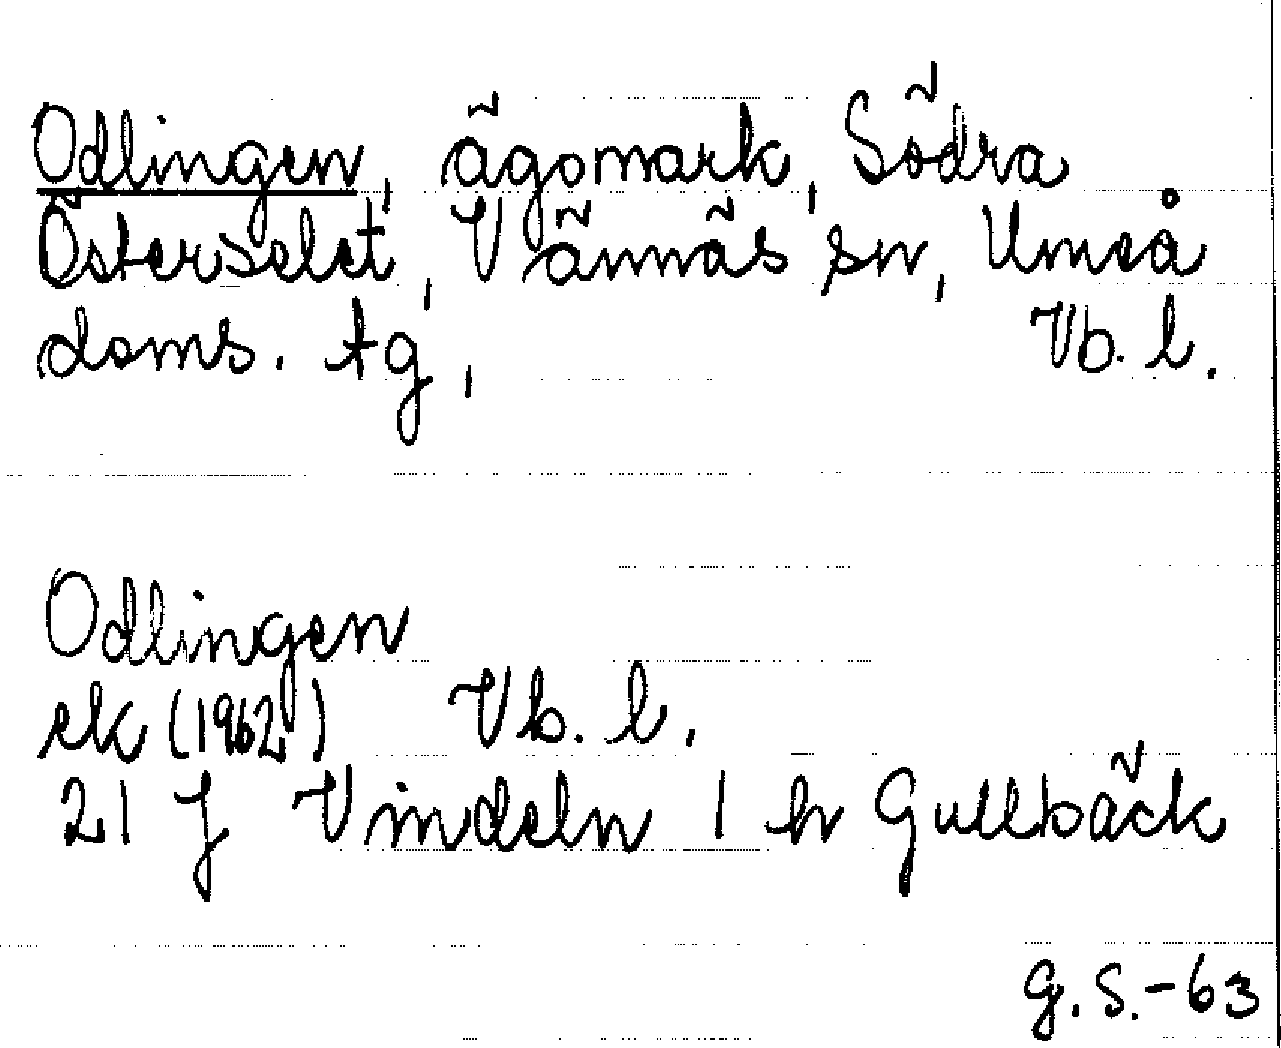 Odlingen, ägomark, Södra
Österselet, Vännäs sn, Umeå
doms. tg, Vb. l.
Odlingen
ek (1962) Vb. l.
21 J Vindeln 1 h Gullbäck
G.S.-63